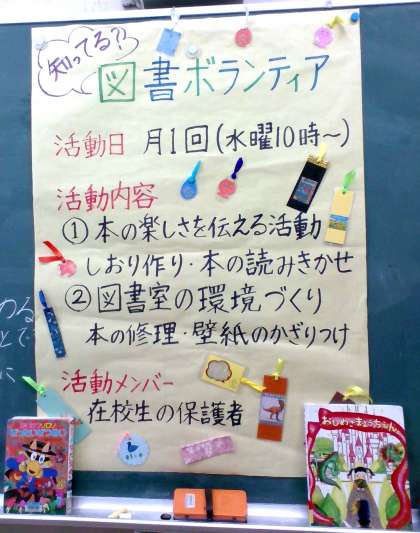 知ってる??
図書ボランティア
活動日 月1回(水曜10時~)
活動内容
①本の楽しさを伝える活動
しおり作り・本の読みきかせ
②図書室の環境づくり
本の修理・壁紙のかざりつけ
活動メンバー
在校生の保護者
おしいれきょうちゃん